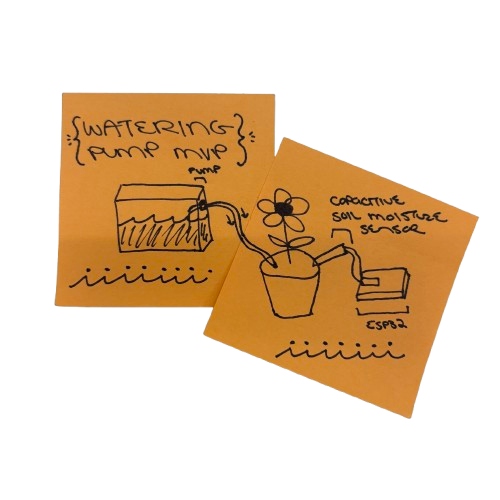 {WATERING
PUMP MVP}
PUMP
CAPACITIVE
SOIL MOISTURE
SENSOR
ESP32